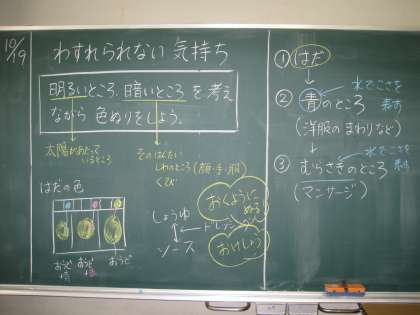 10/9
わすれられない気持ち
明るいところ、暗いところを考え
ながら色ぬりをしよう。
太陽があたって
いるところ
そのはんたい
しわのところ(顔・手・服)
くび
はだの色
おうど
おうど
おうど
しょうゆ
ソース
ドレッシング
おくように
ぬる
おけしょう
① はだ
水でこさを
表す
② 青のところ
(洋服のまわりなど)
水でこさを
表す
③ むらさきのところ
(マンサージ)